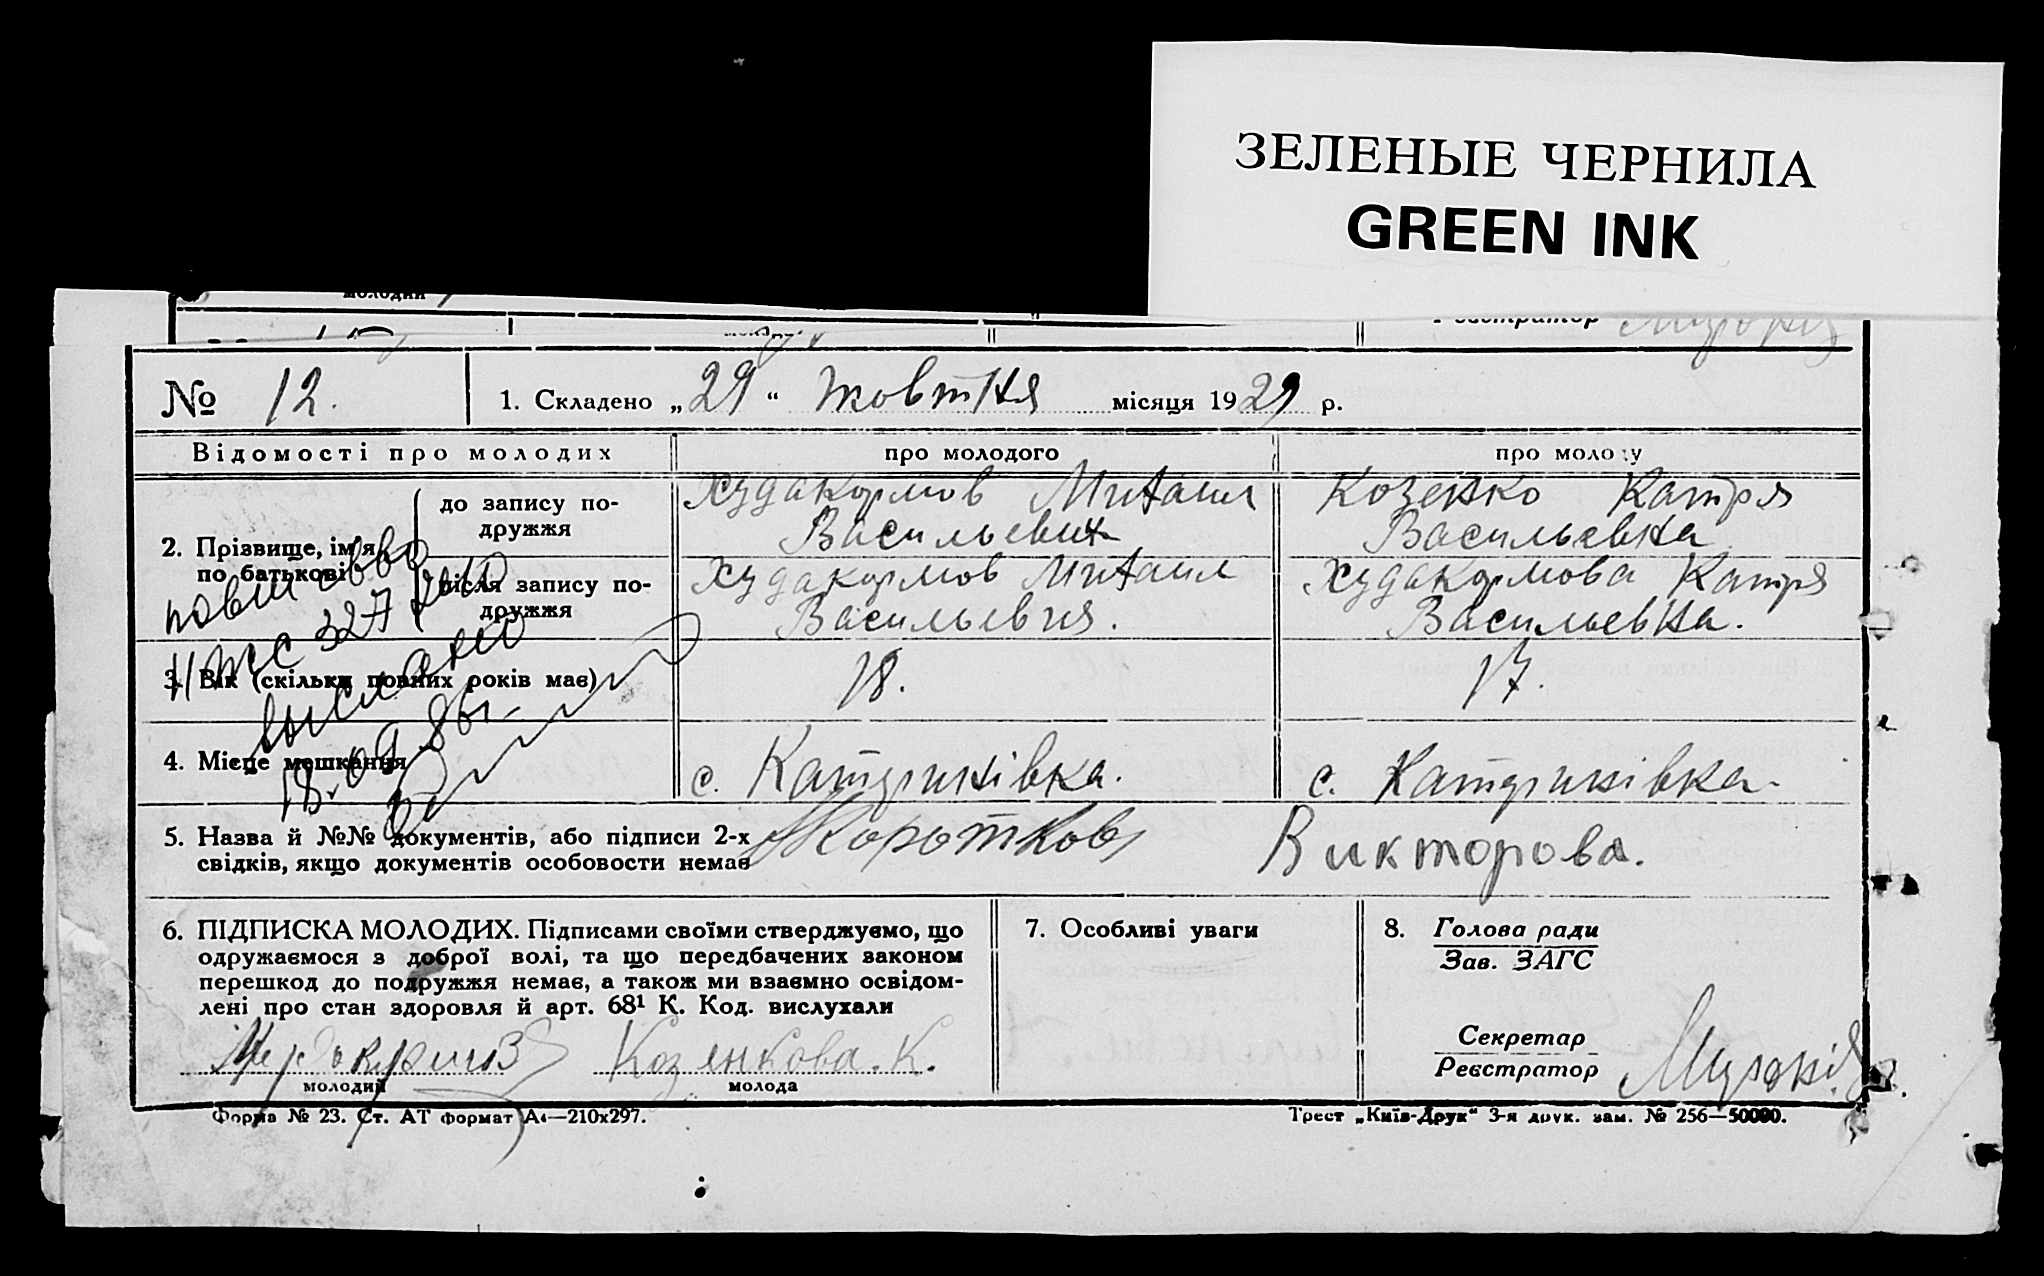 ЗЕЛЕНЫЕ ЧЕРНИЛА
GREEN INK
молодий
Реєстратор
№ 12. 1. Складено „29“ жовтня місяця 1929 р.
Відомості про молодих про молодого про молоду
2. Прізвище, ім'я, по батькові
до запису подружжя
Худакормов Михаил
Васильевич
Козенко Катря
Васильевна
після запису подружжя
Худакормов Михаил
Васильевич.
Худакормова Катря
Васильевна.
3. Вік (скільки повних років має) 18. 17.
4. Місце мешкання с. Катринівка. с. Катринівка.
повт
327
выслано
18.09.86г.
5. Назва й №№ документів, або підписи 2-х
свідків, якщо документів особовости немає
Коротков Викторова.
6. ПІДПИСКА МОЛОДИХ. Підписами своїми стверджуємо, що
одружаємося з доброї волі, та що передбачених законом
перешкод до подружжя немає, а також ми взаємно освідом-
лені про стан здоровля й арт. 68¹ К. Код. вислухали
Козенкова. К.
молодий молода
7. Особливі уваги
8. Голова ради
Зав. ЗАГС
Секретар
Реєстратор
Форма № 23. Ст. АТ формат А₄—210х297.
Трест „Київ-Друк“ 3-я друк. зам. № 256—50000.